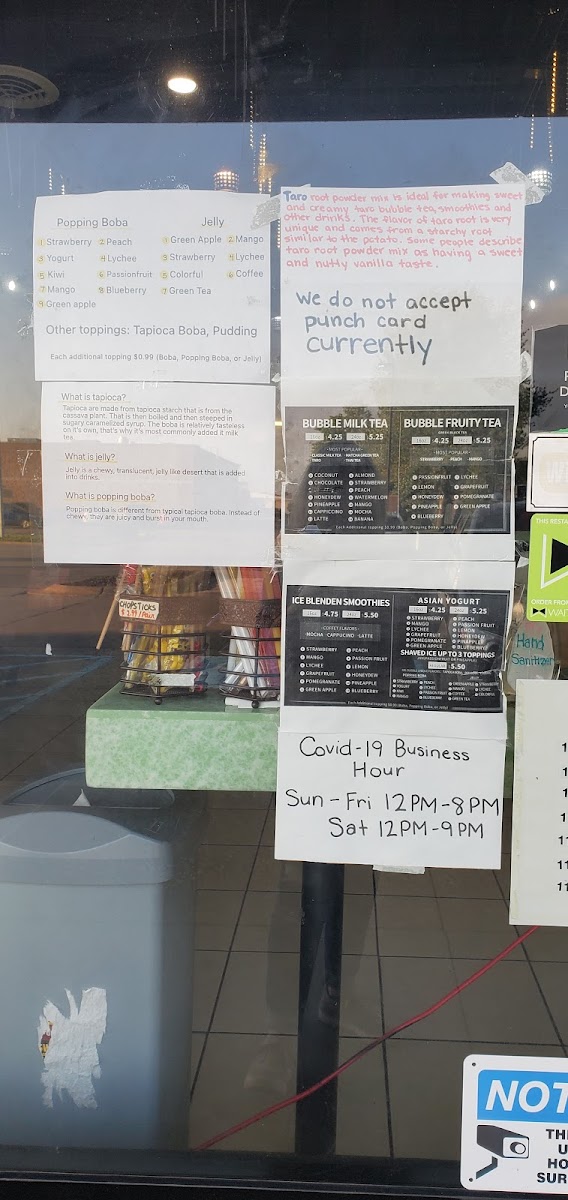 Popping Boba
Jelly
1 Strawberry 2 Peach
3 Yogurt 4 Lychee
5 Kiwi 6 Passionfruit
7 Mango 8 Blueberry
9 Green apple
1 Green Apple 2 Mango
3 Strawberry 4 Lychee
5 Colorful 6 Coffee
7 Green Tea
Other toppings: Tapioca Boba, Pudding
Each additional topping $0.99 (Boba, Popping Boba, or Jelly)
What is tapioca?
Tapioca are made from tapioca starch that is from the
cassava plant. That is then boiled and then steeped in
sugary caramelized syrup. The boba is relatively tasteless
on it's own, that's why it's most commonly added it milk
tea
What is jelly?
Jelly is a chewy, translucent, jelly like desert that is added
into drinks.
What is popping boba?
Popping boba is different from typical tapioca boba. Instead of
chewy, they are juicy and burst in your mouth.
Taro root powder mix is ideal for making sweet
and creamy taro bubble tea, smoothies and
other drinks. The flavor of taro root is very
unique and comes from a starchy root
similar to the potato. Some people describe
taro root powder mix as having a sweet
and nutty vanilla taste.
We do not accept
punch card
currently
BUBBLE MILK TEA
4.25 5.25
-MOST POPULAR-
CLASSIC MILK TEA MATCHA GREEN TEA
TARO THAI TEA
COCONUT ALMOND
CHOCOLATE STRAWBERRY
PEACH
HONEYDEW WATERMELON
PINEAPPLE MANGO
CAPPUCCINO MOCHA
LATTE BANANA
BUBBLE FRUITY TEA
4.25 5.25
-MOST POPULAR-
STRAWBERRY PEACH MANGO
PASSIONFRUIT LYCHEE
LEMON GRAPEFRUIT
HONEYDEW POMEGRANATE
PINEAPPLE GREEN APPLE
BLUEBERRY
Each Additional topping $0.99 (Boba, Popping Boba, or Jelly)
ICE BLENDEN SMOOTHIES
4.75 5.50
-COFFEE FLAVORS-
MOCHA CAPPUCINO LATTE
STRAWBERRY PEACH
MANGO PASSION FRUIT
LYCHEE LEMON
GRAPEFRUIT HONEYDEW
POMEGRANATE PINEAPPLE
GREEN APPLE BLUEBERRY
ASIAN YOGURT
4.25 5.25
STRAWBERRY PEACH
MANGO PASSION FRUIT
LYCHEE LEMON
GRAPEFRUIT HONEYDEW
POMEGRANATE PINEAPPLE
GREEN APPLE BLUEBERRY
SHAVED ICE UP TO 3 TOPPINGS
5.50
Covid-19 Business
Hour
Sun - Fri 12PM-8PM
Sat 12PM-9PM
CHOPSTICKS
Hand
Sanitizer
THIS RESTA
ORDER FROM
WAIT
NOT
THI
U
HO
SUR